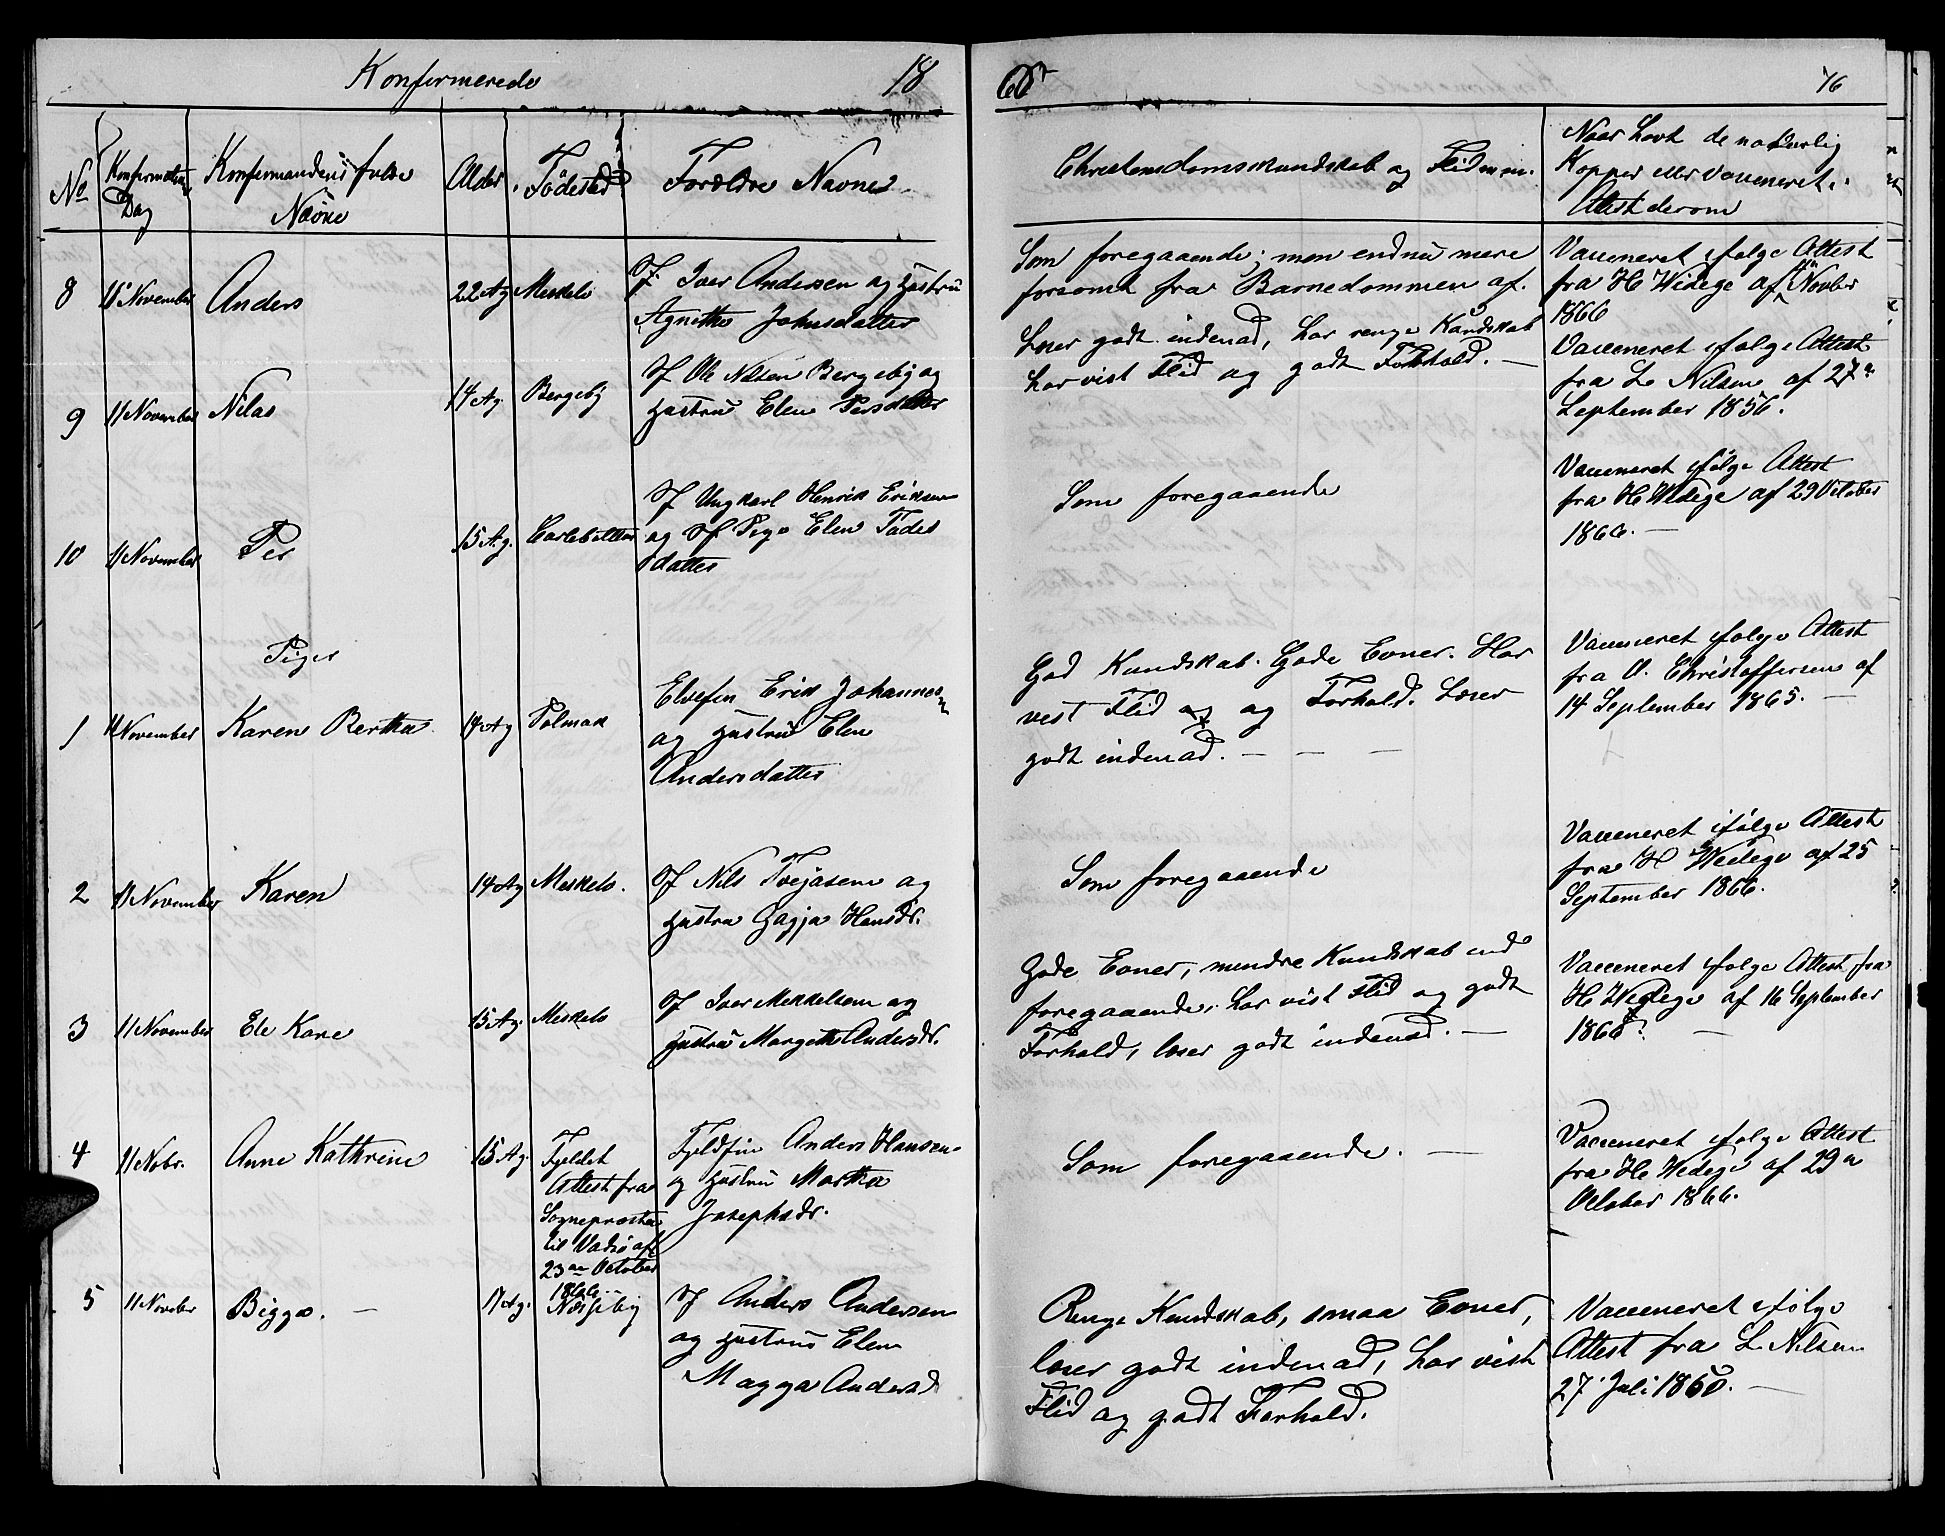 Konfirmerede 18
66 76
No
Konfirmations
Dag
Konfirmandens fulde
Navne
Alder
Födested
Forældre Navne
Christendomskundskab og Flid m.m.
Naar havt de naturlig
Kopper eller vaccineret.
Attest derom
8 11 November Anders 22 Ag Meskelv
Sf. Iver Andersen og Hustru
Agnethe Johnsdatter
Som foregaaende; men endnu mere
forsømt fra Barnedommen af.
Vaccineret ifølge Attest
fra H Wedege af Novber
1866
9 11 November Nilas 14 Ag. Bergeby
Sf Ole Nilsen Bergeby og
Hustru Elen Persdatter
Læser godt indenad, har ringe Kundskab
har vist Flid og godt Forhold. —
Vaccineret ifølge Attest
fra L Nilsen af 27n
September 1856.
10 11 November Per 15 Ag. Carlebotten
Sf Ungkarl Henrik Eriksen
og Sf Pige Elen Fades
datter
Som foregaaende
Vaccineret ifølge Attest
fra H Wedege af 29 October
1866. —
Piger
1 11 November Karen Bertha 14 Ag Polmak
Elvefin Erik Johannes
og Hustru Elen
Andersdatter
God Kundskab. Gode Evner. Har
vist Flid og og Forhold. Læser
godt indenad. — — —
Vaccineret ifølge Attest
fra O. Christoffersen af
14 September 1865. —
2 11 November Karen 14 Ag Meskelv.
Sf Nils Tvejasen og
Hustru Gagja Hansdr.
Som foregaaende
Vaccineret ifølge Attest
fra H Wedege af 25
September 1866.
3 11 November Ele Kare 15 Ag. Meskelv
Sf Iver Mikkelsen og
Hustru Margethe Andersdr.
Gode Evner, mindre Kundskab end
foregaaende, har vist Flid og godt
Forhold, læser godt indenad. —
Vaccineret ifølge Attest fra
H Wedege af 16 September
1866. —
4 11 Nobr. Anne Kathrine 15 Ag.
Fjeldet
Attest fra
Sognepræsten
til Vadsö af
23de October
1866.
Fjeldfin Anders Hansen
og Hustru Martha
Josephsdr.
Som foregaaende. —
Vaccineret ifølge Attest
fra H Wedege af 29n
October 1866.
5 11 Novber Bigga. — 17 Ag. Næsseby
Sf Anders Andersen
og Hustru Elen
Magga Andersd
Ringe Kundskab, smaa Evner,
læser godt indenad, har vist
Flid og godt Forhold.
Vaccineret ifølge
Attest fra L Nilsen
27 Juli 1850. —